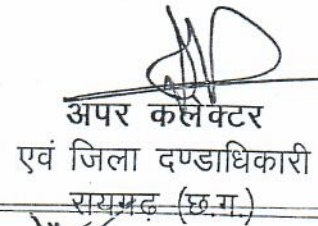 अपर कलेक्टर
एवं जिला दण्डाधिकारी
रायगढ़ (छ.ग.)